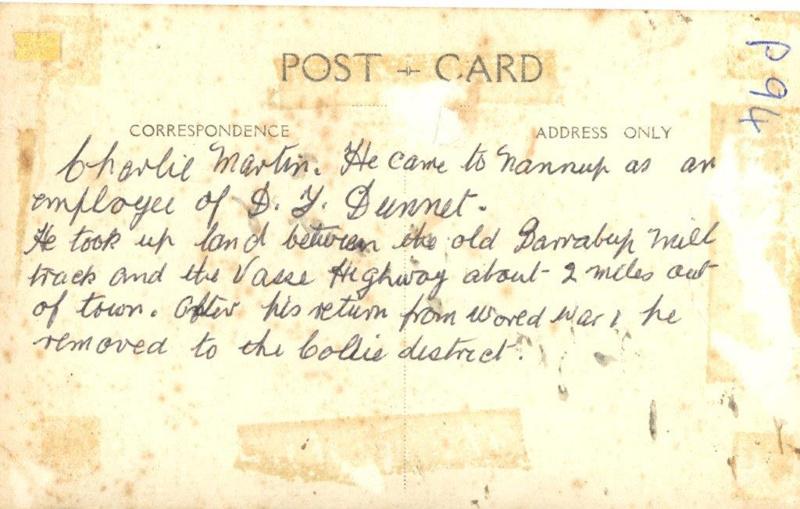 POST + CARD
P94
CORRESPONDENCE
ADDRESS ONLY
Charlie Martin. He came to Nannup as an
employee of D. J. Dunnet.
He took up land between the old Barrabup Mill
track and the Vasse Highway about 2 miles out
of town. After his return from World War 1 he
removed to the Collie district.